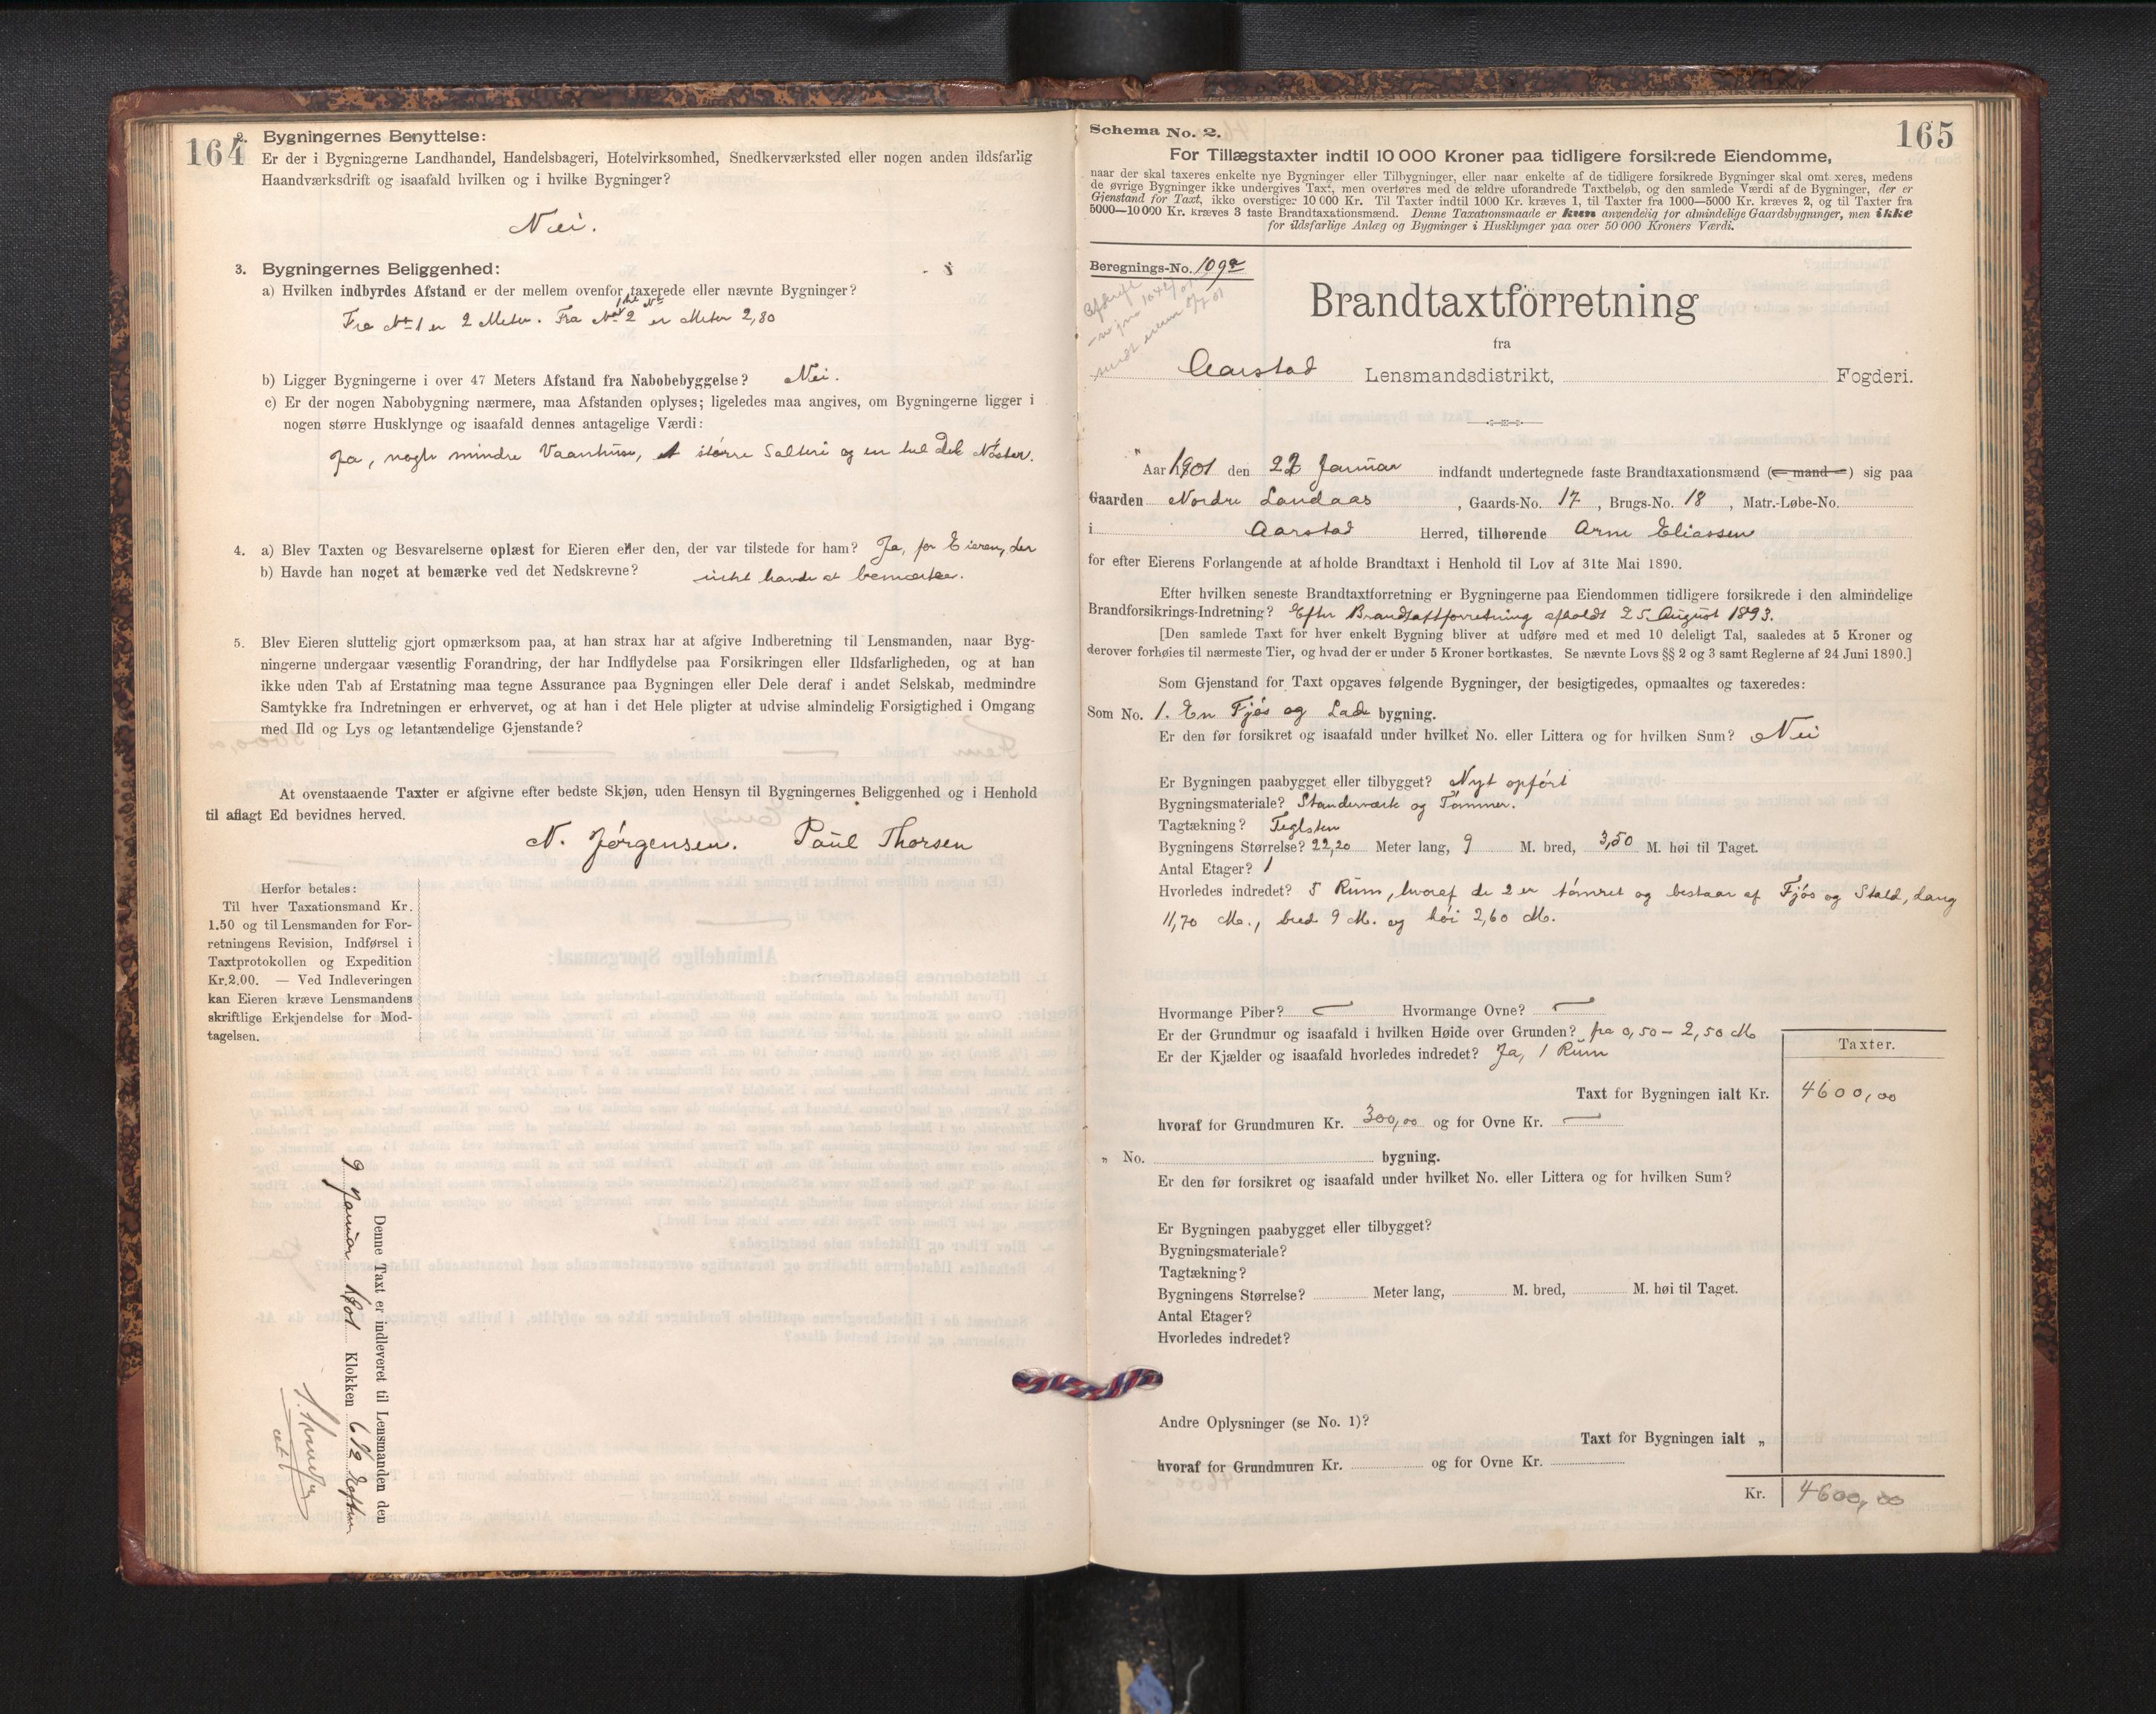 164
2. Bygningernes Benyttelse:
Er der i Bygningerne Landhandel, Handelsbageri, Hotelvirksomhed, Snedkerværksted eller nogen anden ildsfarlig
Haandværksdrift og isaafald hvilken og i hvilke Bygninger?
Nei.
3. Bygningernes Beliggenhed:
a) Hvilken indbyrdes Afstand er der mellem ovenfor taxerede eller nævnte Bygninger?
Fra No 1 er 2 Meter. Fra No 2 er Meter 2,80
b) Ligger Bygningerne i over 47 Meters Afstand fra Nabobebyggelse? Nei.
c) Er der nogen Nabobygning nærmere, maa Afstanden oplyses; ligeledes maa angives, om Bygningerne ligger i
nogen større Husklynge og isaafald dennes antagelige Værdi:
Ja, nogle mindre Vaanhuse, et større Salteri og en hel Del Nøster.
4. a) Blev Taxten og Besvarelserne oplæst for Eieren eller den, der var tilstede for ham? Ja, for Eieren, der
b) Havde han noget at bemærke ved det Nedskrevne? intet havde at bemærke.
5. Blev Eieren sluttelig gjort opmærksom paa, at han strax har at afgive Indberetning til Lensmanden, naar Byg-
ningerne undergaar væsentlig Forandring, der har Indflydelse paa Forsikringen eller Ildsfarligheden, og at han
ikke uden Tab af Erstatning maa tegne Assurance paa Bygningen eller Dele deraf i andet Selskab, medmindre
Samtykke fra Indretningen er erhvervet, og at han i det Hele pligter at udvise almindelig Forsigtighed i Omgang
med Ild og Lys og letantændelige Gjenstande?
At ovenstaaende Taxter er afgivne efter bedste Skjøn, uden Hensyn til Bygningernes Beliggenhed og i Henhold
til aflagt Ed bevidnes herved.
N. Jørgensen. Paul Thorsen
Herfor betales:
Til hver Taxationsmand Kr.
1.50 og til Lensmanden for For-
retningens Revision, Indførsel i
Taxtprotokollen og Expedition
Kr. 2.00. — Ved Indleveringen
kan Eieren kræve Lensmandens
skriftlige Erkjendelse for Mod-
tagelsen.
Denne Taxt er indleveret til Lensmanden den
9 Januar 1901 Klokken 6 1/2 Efterm
165
Schema No. 2.
For Tillægstaxter indtil 10 000 Kroner paa tidligere forsikrede Eiendomme,
naar der skal taxeres enkelte nye Bygninger eller Tilbygninger, eller naar enkelte af de tidligere forsikrede Bygninger skal omtaxeres, medens
de øvrige Bygninger ikke undergives Taxt, men overføres med de ældre uforandrede Taxtbeløb, og den samlede Værdi af de Bygninger, der er
Gjenstand for Taxt, ikke overstiger 10 000 Kr. Til Taxter indtil 1000 Kr. kræves 1, til Taxter fra 1000—5000 Kr. kræves 2, og til Taxter fra
5000—10 000 Kr. kræves 3 faste Brandtaxationsmænd. Denne Taxationsmaade er kun anvendelig for almindelige Gaardsbygninger, men ikke
for ildsfarlige Anlæg og Bygninger i Husklynger paa over 50 000 Kroners Værdi.
Beregnings-No. 109a
Brandtaxtforretning
fra
Aarstad Lensmandsdistrikt, Fogderi.
Aar 1901 den 22 Januar indfandt undertegnede faste Brandtaxationsmænd (— mand —) sig paa
Gaarden Nordre Landaas, Gaards-No. 17, Brugs-No. 18, Matr.-Løbe-No.
i Aarstad Herred, tilhørende Arne Eliassen
for efter Eierens Forlangende at afholde Brandtaxt i Henhold til Lov af 31te Mai 1890.
Efter hvilken seneste Brandtaxtforretning er Bygningerne paa Eiendommen tidligere forsikrede i den almindelige
Brandforsikrings-Indretning? Efter Brandtaxtforretning afholdt 25 August 1893.
[Den samlede Taxt for hver enkelt Bygning bliver at udføre med et med 10 deleligt Tal, saaledes at 5 Kroner og
derover forhøies til nærmeste Tier, og hvad der er under 5 Kroner bortkastes. Se nævnte Lovs §§ 2 og 3 samt Reglerne af 24 Juni 1890.]
Som Gjenstand for Taxt opgaves følgende Bygninger, der besigtigedes, opmaaltes og taxeredes:
Som No. 1. En Fjøs og Lade bygning.
Er den før forsikret og isaafald under hvilket No. eller Littera og for hvilken Sum? Nei
Er Bygningen paabygget eller tilbygget? Nyt opført
Bygningsmateriale? Standerværk og Tømmer.
Tagtækning? Teglsten
Bygningens Størrelse? 22,20 Meter lang, 9 M. bred, 3,50 M. høi til Taget.
Antal Etager? 1
Hvorledes indredet? 5 Rum, hvoraf de 2 er tømret og bestaar af Fjøs og Stald, lang
11,70 M., bred 9 M. og høi 2,60 M.
Hvormange Piber? — Hvormange Ovne? —
Er der Grundmur og isaafald i hvilken Høide over Grunden? fra 0,50 – 2,50 M
Er der Kjælder og isaafald hvorledes indredet? Ja, 1 Rum
Taxter.
Taxt for Bygningen ialt Kr. 4600,00
hvoraf for Grundmuren Kr. 300,00 og for Ovne Kr. —
„ No. bygning.
Er den før forsikret og isaafald under hvilket No. eller Littera og for hvilken Sum?
Er Bygningen paabygget eller tilbygget?
Bygningsmateriale?
Tagtækning?
Bygningens Størrelse? Meter lang, M. bred, M. høi til Taget.
Antal Etager?
Hvorledes indredet?
Andre Oplysninger (se No. 1)?
Taxt for Bygningen ialt „
hvoraf for Grundmuren Kr. og for Ovne Kr.
Kr. 4600,00